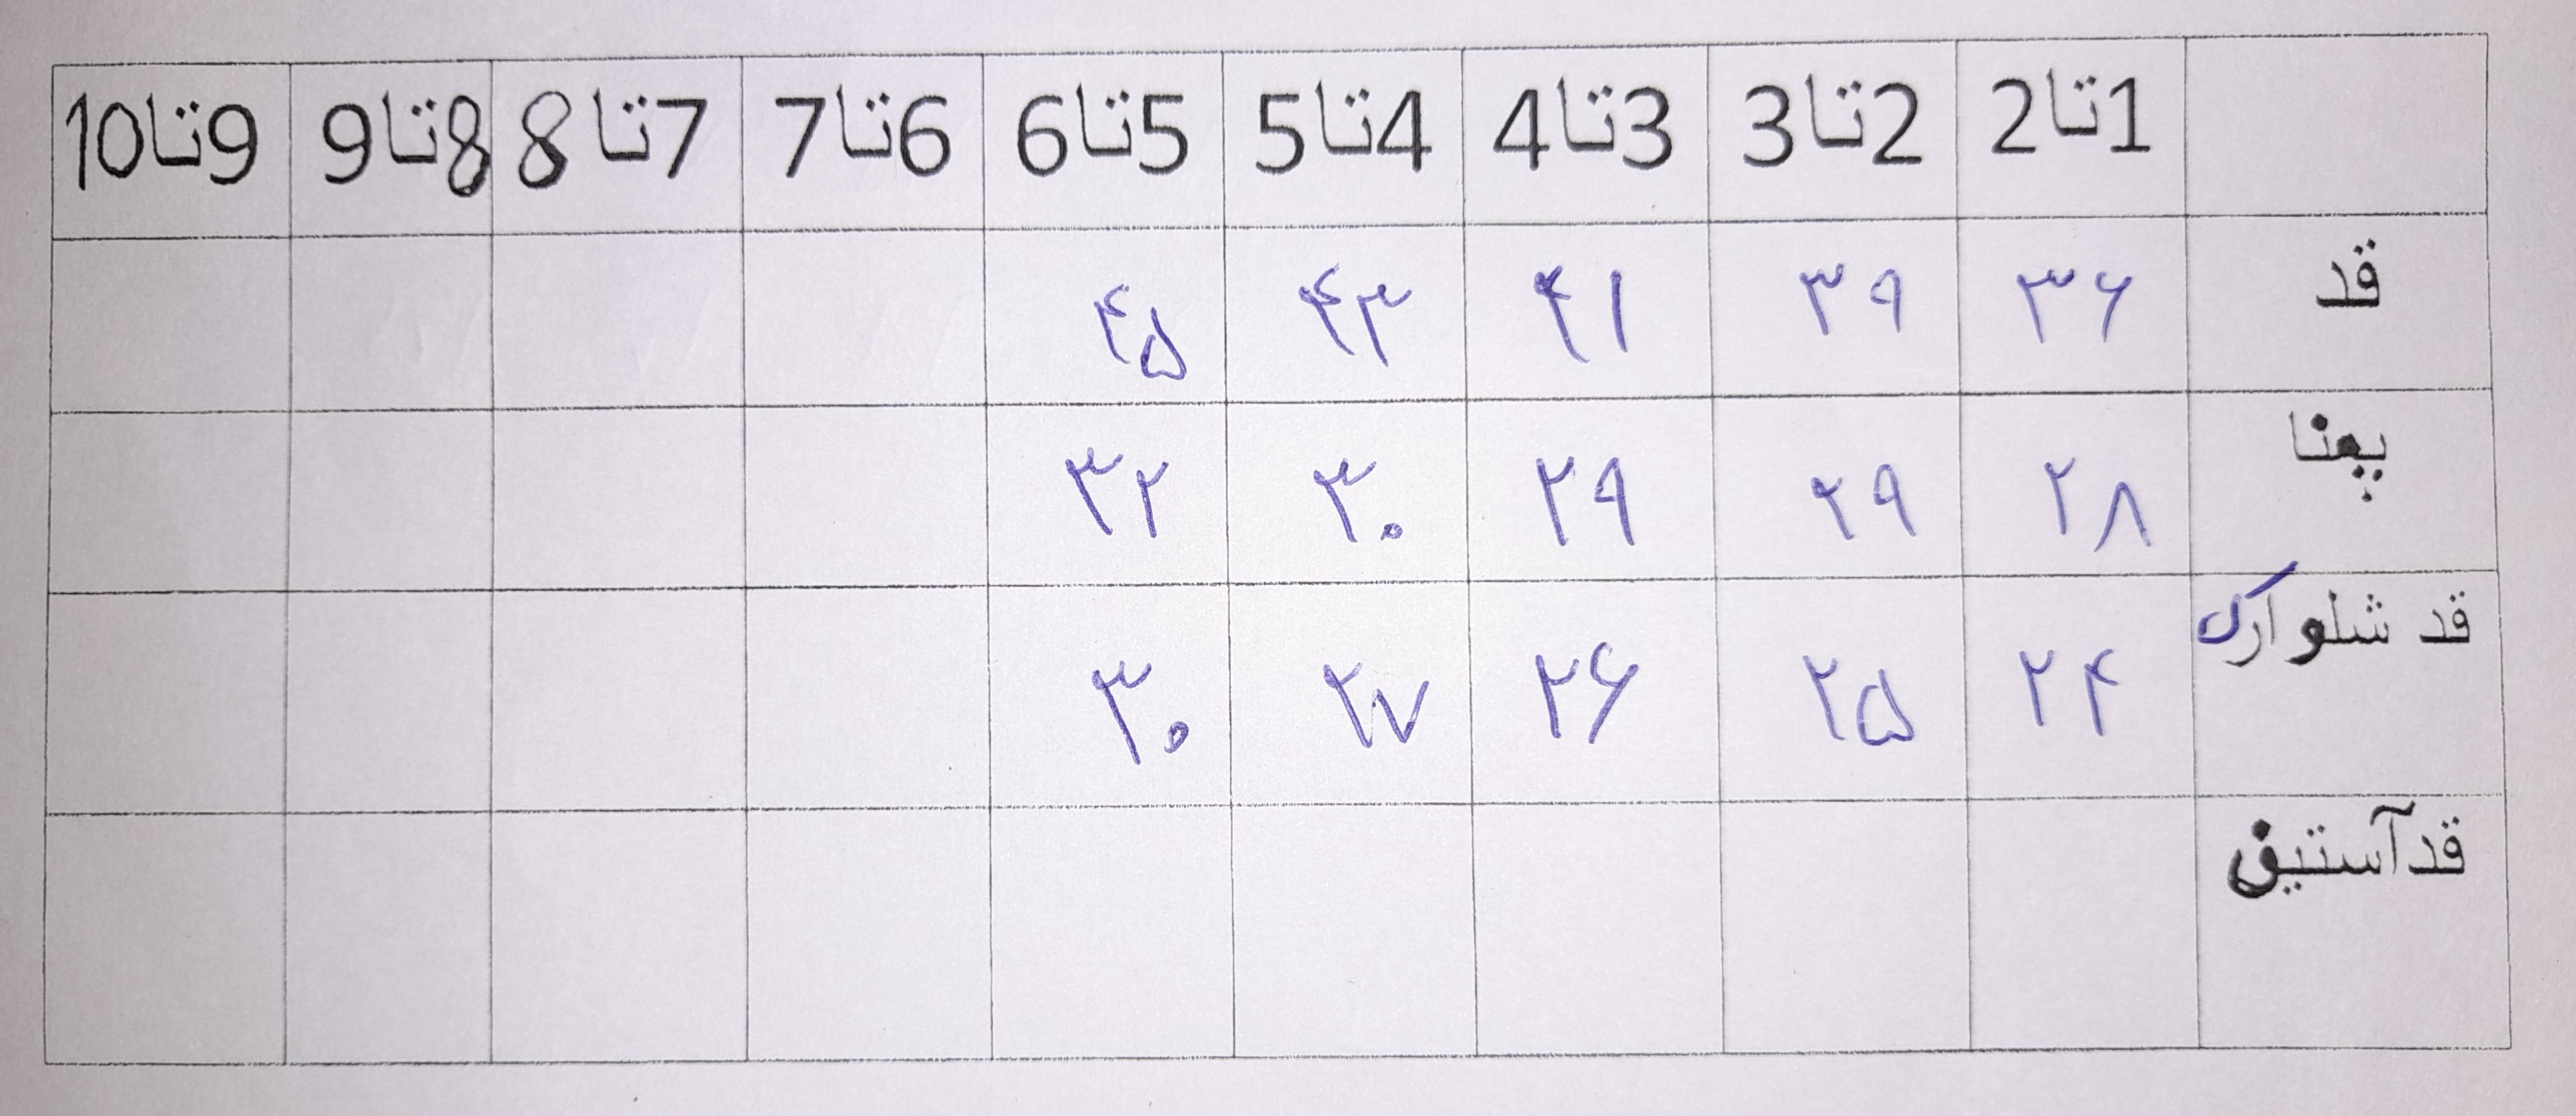 1تا2 2تا3 3تا4 4تا5 5تا6 6تا7 7تا8 8تا9 9تا10
قد ۳۶ ۳۹ ۴۱ ۴۳ ۴۵
پهنا ۲۸ ۲۹ ۲۹ ۳۰ ۳۲
قد شلوارک ۲۴ ۲۵ ۲۶ ۲۷ ۳۰
قدآستین